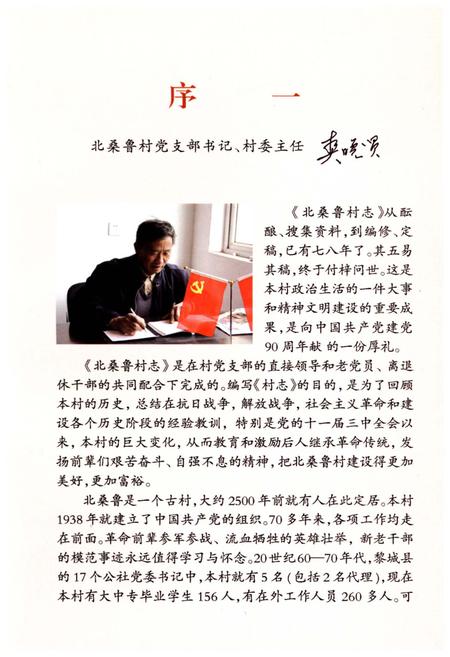 序 一
北桑鲁村党支部书记、村委主任
《北桑鲁村志》从酝
酿、搜集资料，到编修、定
稿，已有七八年了。其五易
其稿，终于付梓问世。这是
本村政治生活的一件大事
和精神文明建设的重要成
果，是向中国共产党建党
90 周年献 的一份厚礼。
《北桑鲁村志》是在村党支部的直接领导和老党员、离退
休干部的共同配合下完成的。编写《村志》的目的，是为了回顾
本村的历史，总结在抗日战争，解放战争，社会主义革命和建
设各个历史阶段的经验教训，特别是党的十一届三中全会以
来，本村的巨大变化，从而教育和激励后人继承革命传统，发
扬前辈们艰苦奋斗、自强不息的精神，把北桑鲁村建设得更加
美好，更加富裕。
北桑鲁是一个古村，大约 2500 年前就有人在此定居。本村
1938 年就建立了中国共产党的组织。70 多年来，各项工作均走
在前面。革命前辈参军参战、流血牺牲的英雄壮举，新老干部
的模范事迹永远值得学习与怀念。20世纪60—70年代，黎城县
的 17 个公社党委书记中，本村就有 5 名（包括 2 名代理），现在
本村有大中专毕业学生 156 人，有在外工作人员 260 多人。可